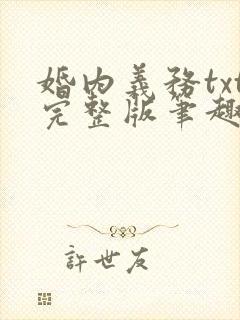 婚内義務txt
完整版筆趣
許世友